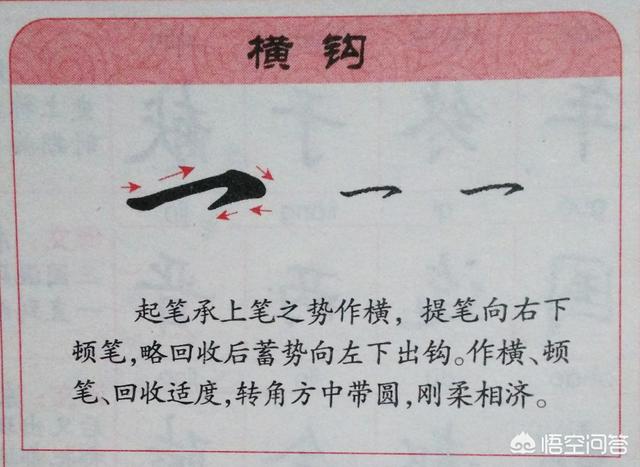 横钩
起笔承上笔之势作横，提笔向右下
顿笔，略回收后蓄势向左下出钩。作横、顿
笔、回收适度，转角方中带圆，刚柔相济。
悟空问答